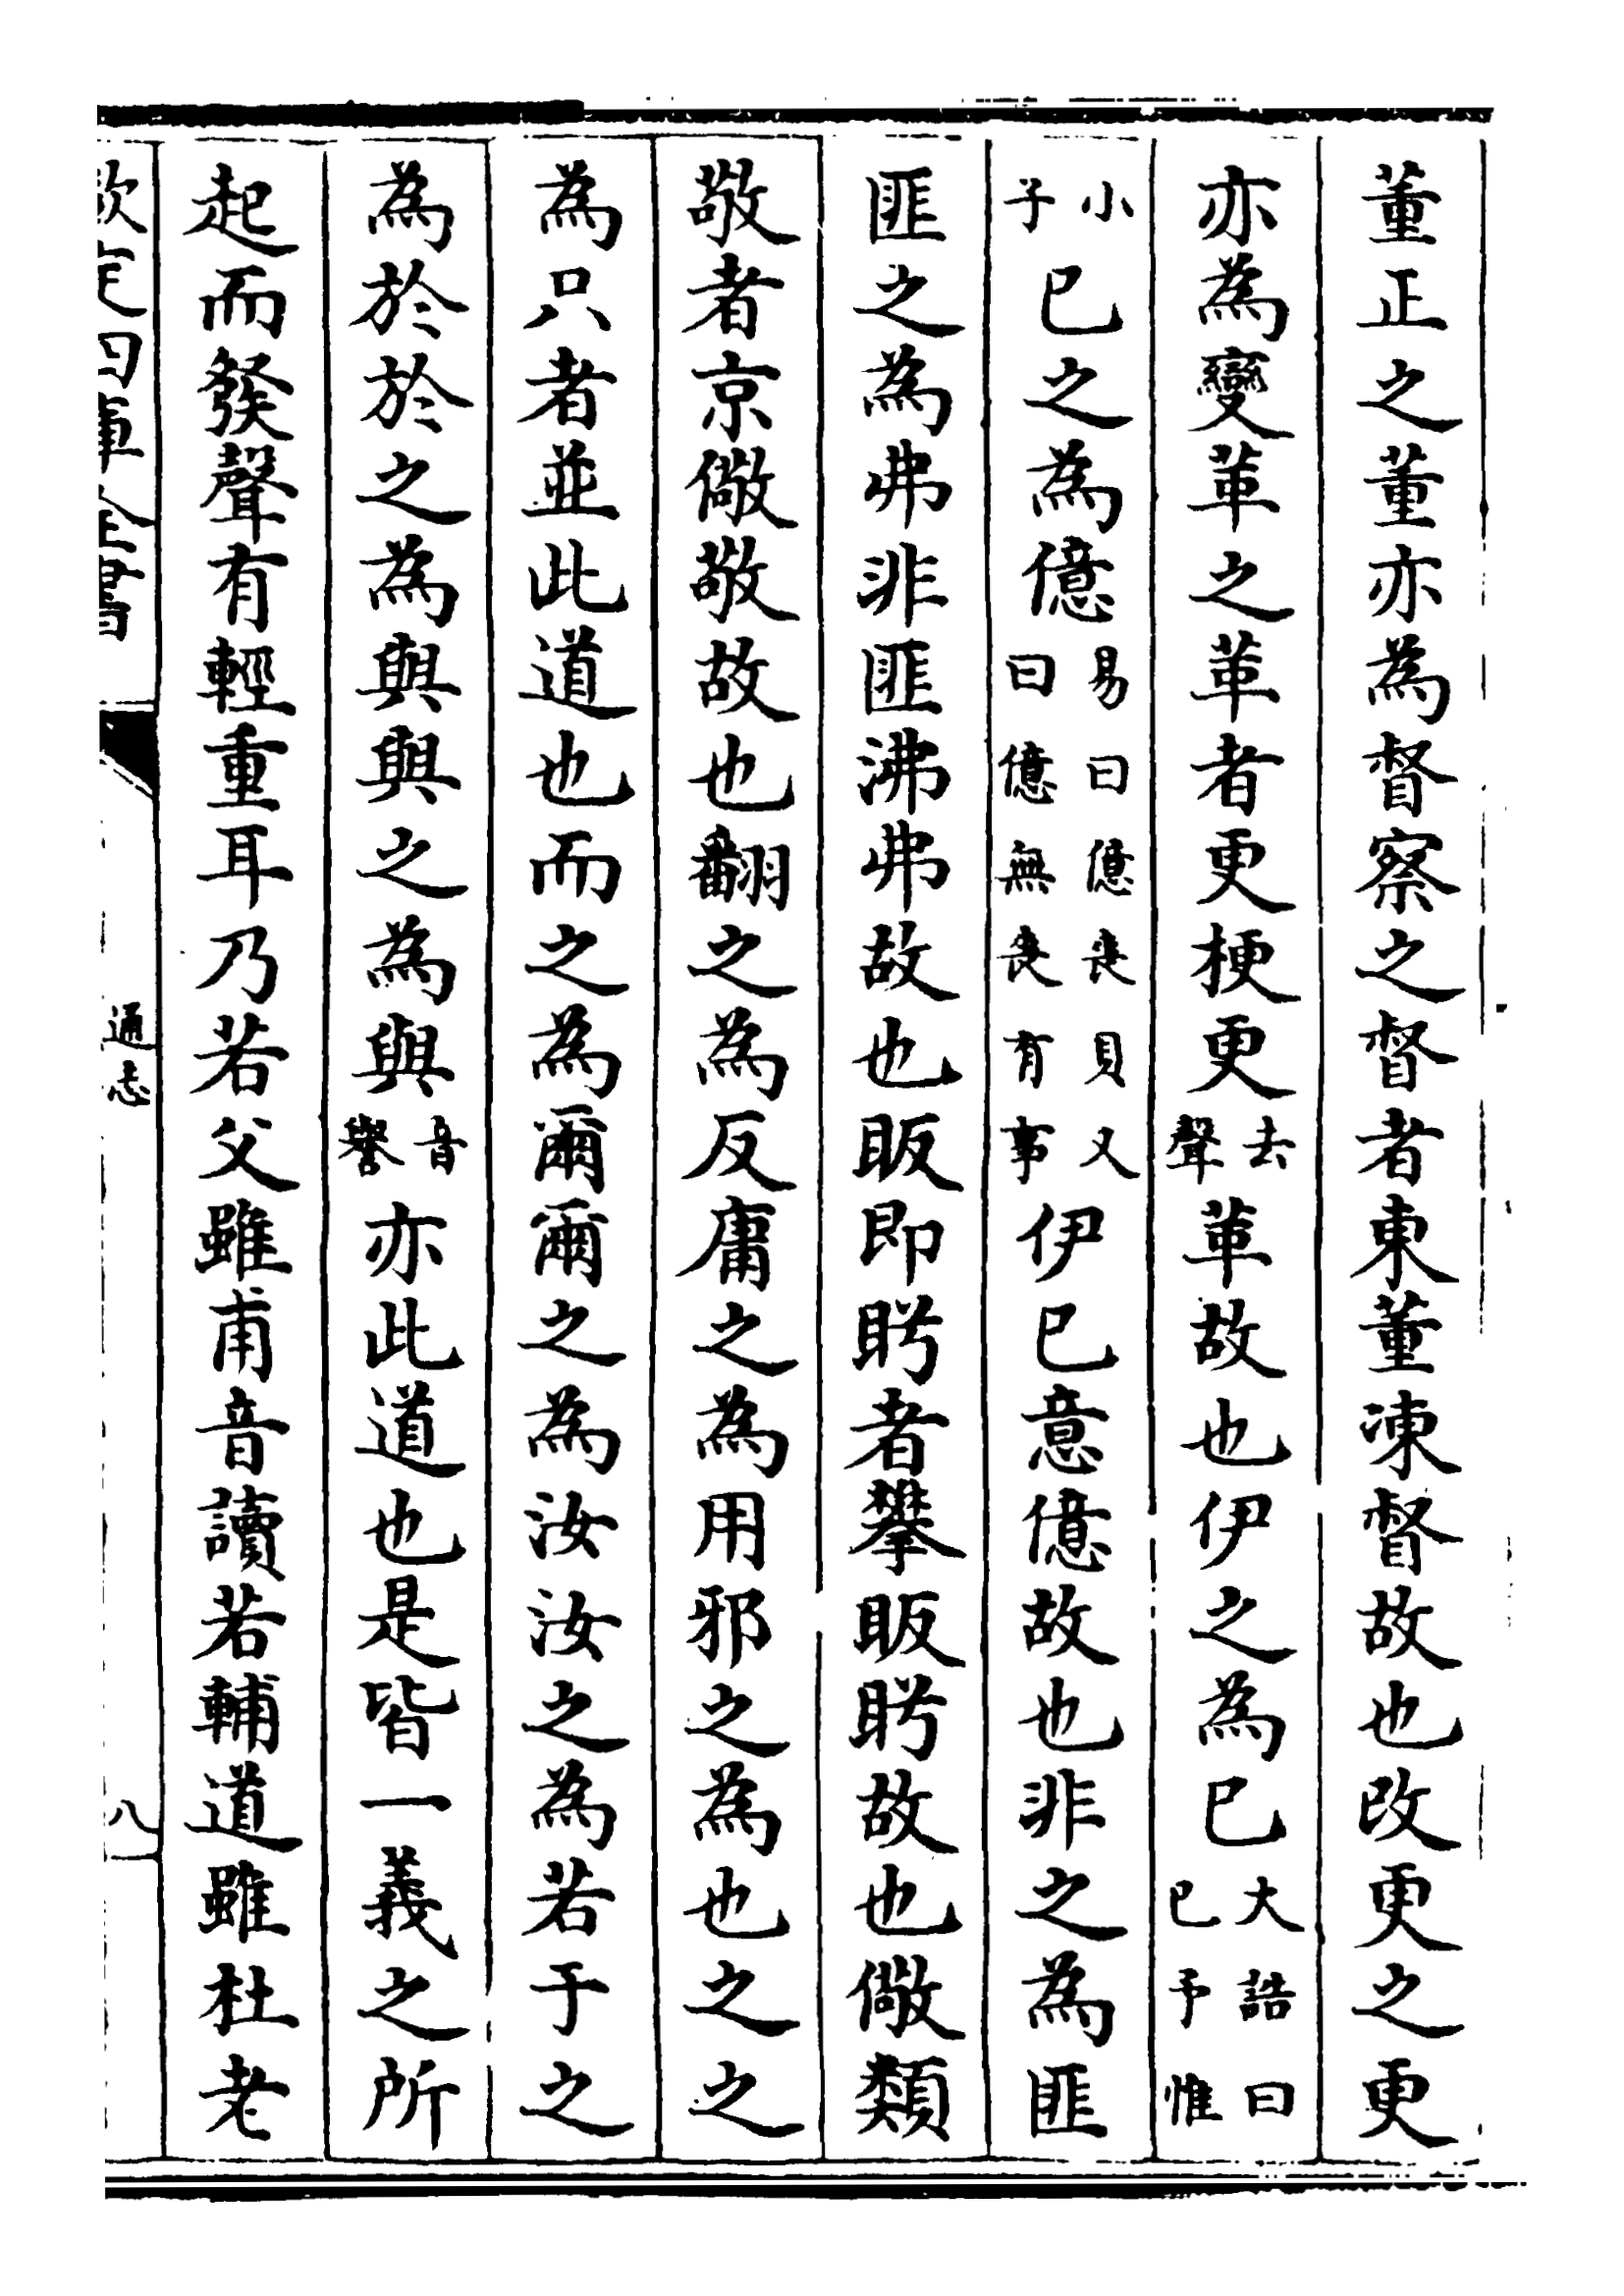 董正之董亦為督察之督者東董凍督故也改更之更
亦為變革之革者更梗更去聲革故也伊之為已大誥曰已予惟
小子已之為億易曰億喪貝又曰億無喪有事伊已意億故也非之為匪
匪之為弗非匪沸弗故也眅即盻者攀眅盻故也儆類
敬者京儆敬故也翻之為反庸之為用邪之為也之之
為只者並此道也而之為爾爾之為汝汝之為若于之
為於於之為與與之為與音譽亦此道也是皆一義之所
起而發聲有輕重耳乃若父雖甫音讀若輔道雖杜老
欽定四庫全書
通志
八